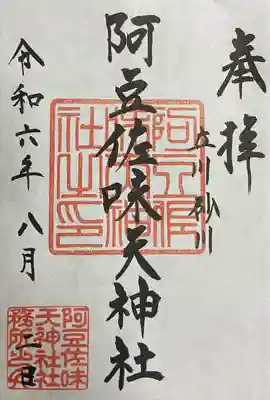 奉拝
立川 砂川
阿豆佐味天神社
令和六年八月
日
阿豆佐
味天神
社之印
阿豆佐味
天神社社
務所之印